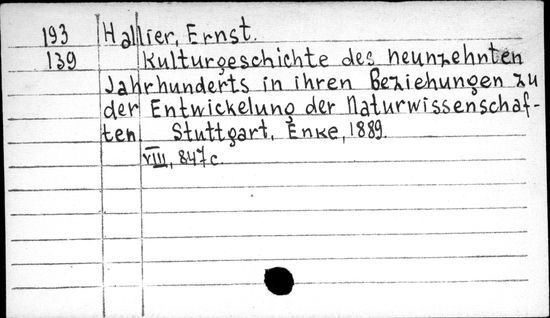 193 Hallier, Ernst.
139 Kulturgeschichte des neunzehnten
Jahrhunderts in ihren Beziehungen zu
der Entwickelung der Naturwissenschaf-
ten Stuttgart, Enke, 1889.
VIII, 847 c.